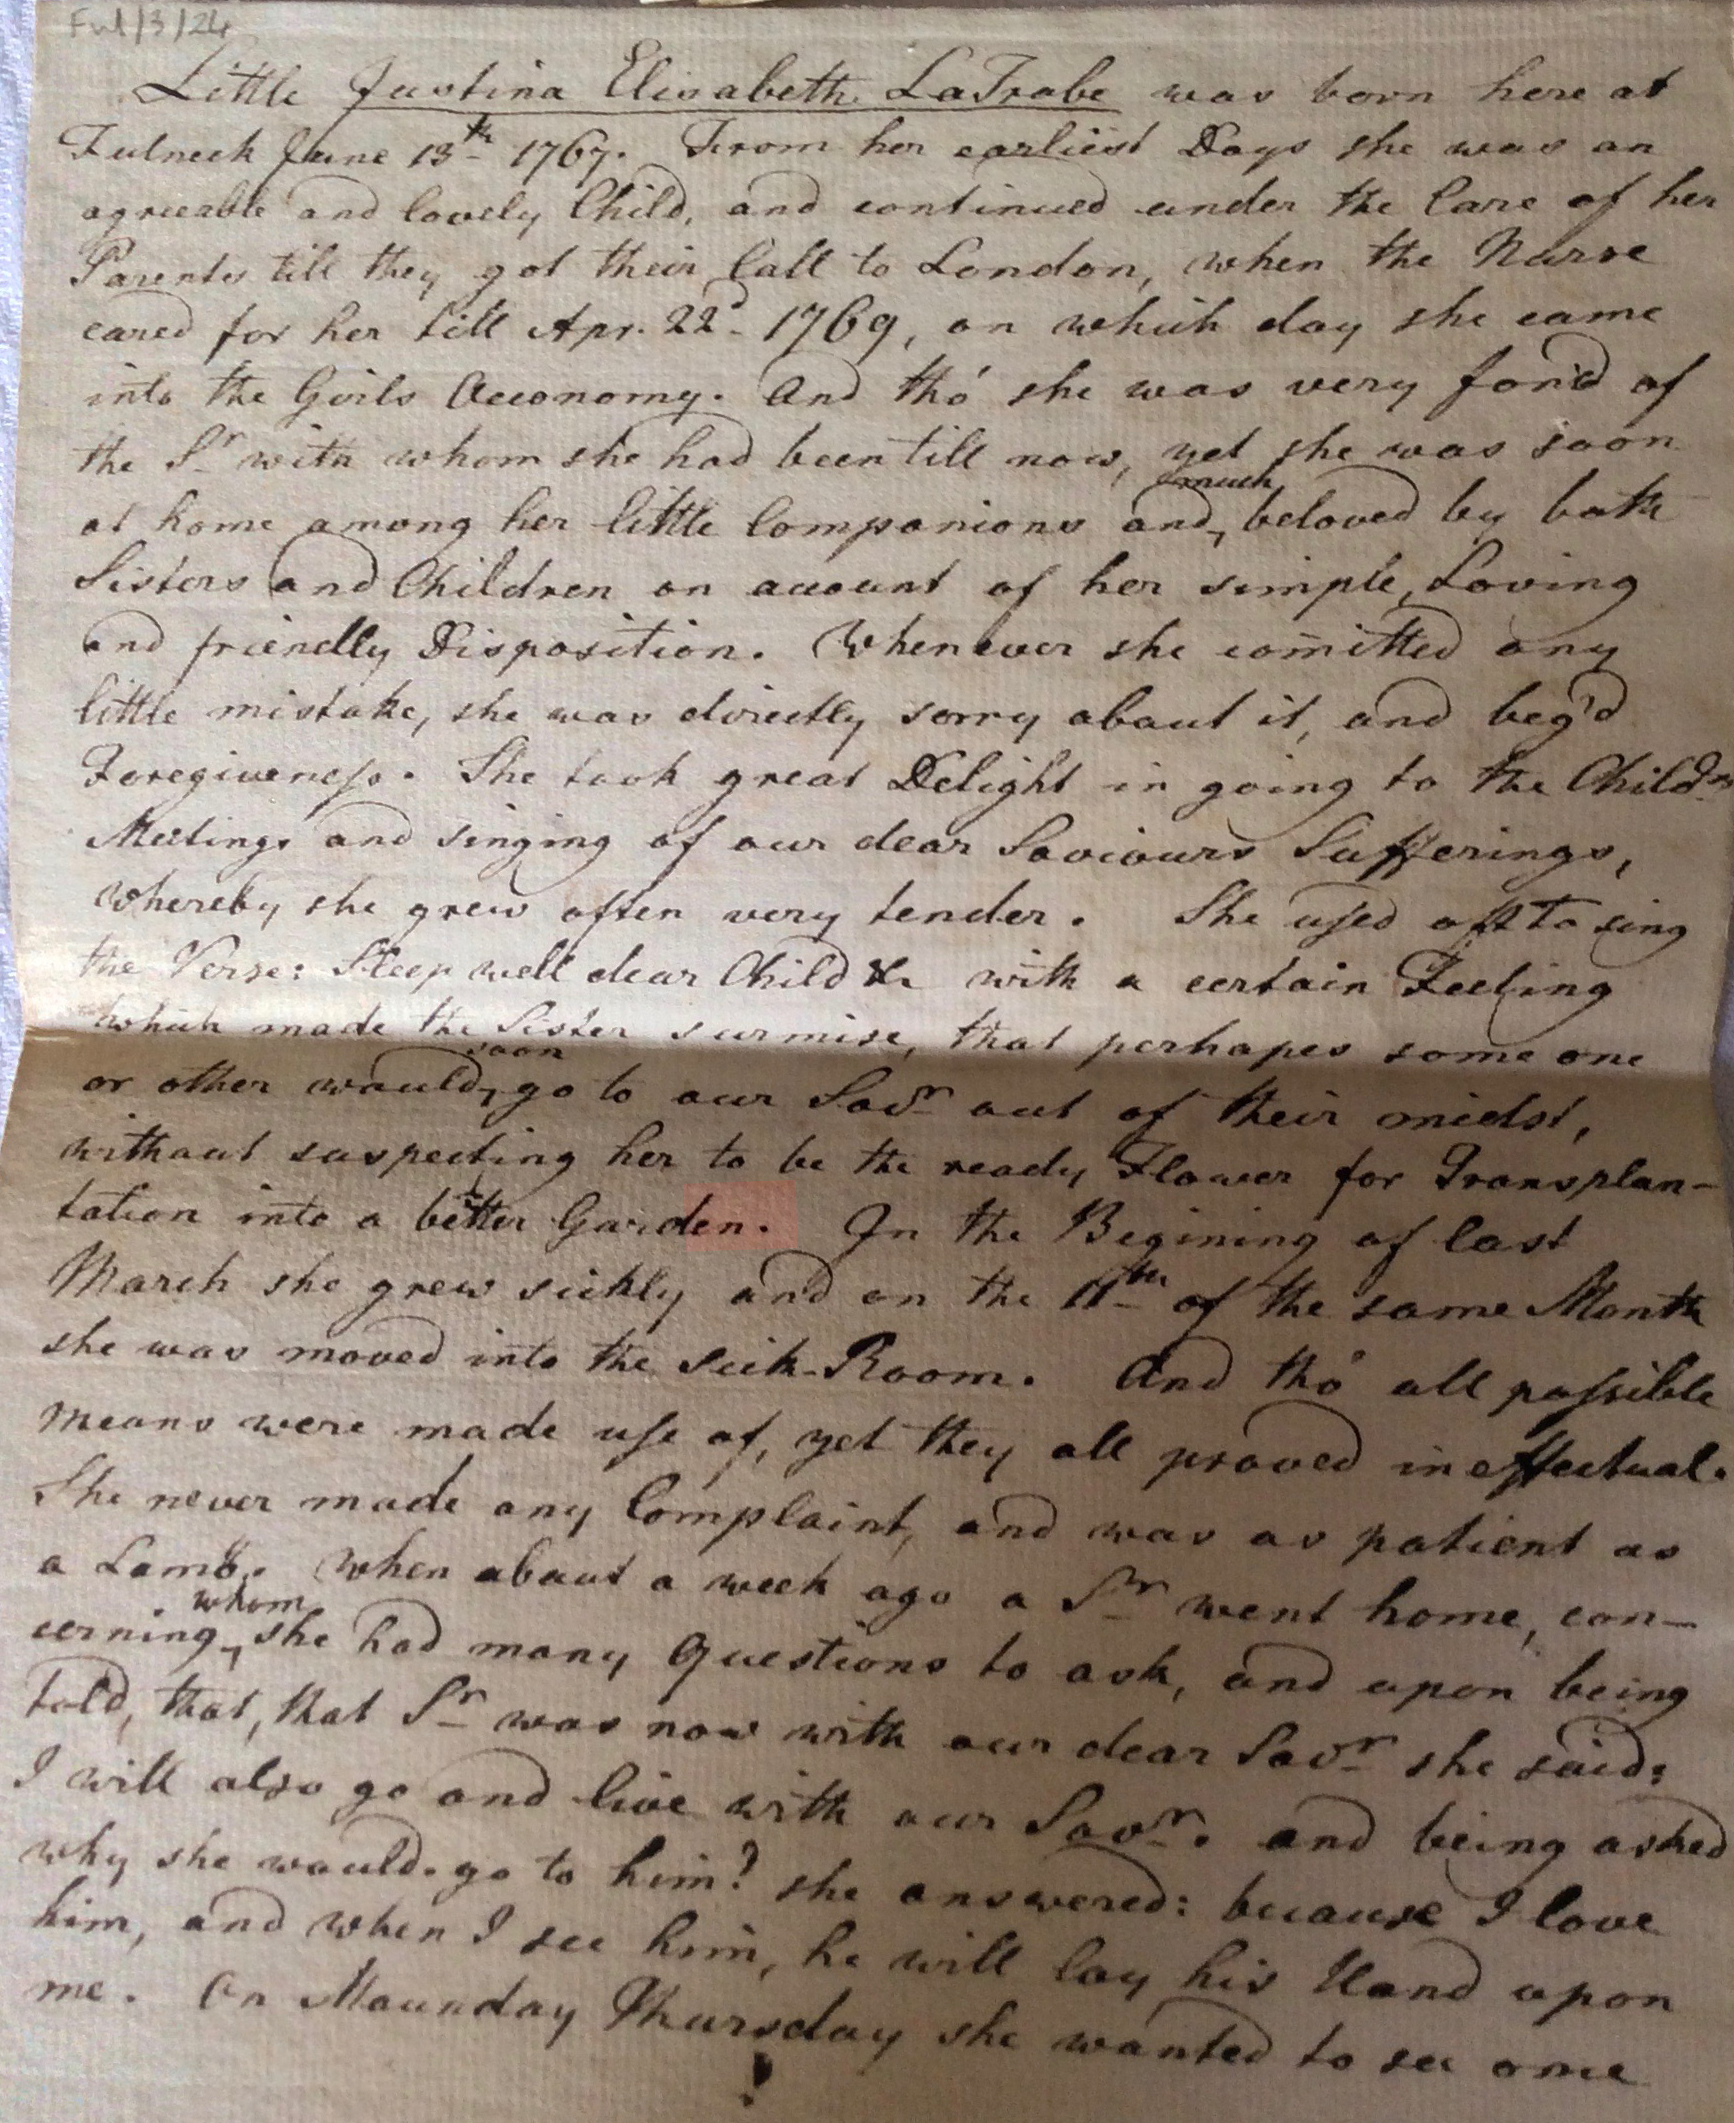 Ful/3/24
Little Justina Elisabeth LaTrobe was born here at
Fulneck June 13th 1767. From her earliest Days she was an
agreeable and lovely Child, and continued under the Care of her
Parents till they got their Call to London, when the Nurse
cared for her till Apr. 22d 1769, on which day she came
into the Girls Oeconomy. And tho' she was very fon'd of
the Sr with whom she had been till now, yet she was soon
at home among her little Companions and much beloved by both
Sisters and Children on account of her simple, Loving
and friendly Disposition. Whenever she com̄itted any
little mistake, she was directly sorry about it, and beg'd
Foregiveness. She took great Delight in going to the Childn
Meetings and singing of our dear Saviours Sufferings,
whereby she grew often very tender. She used oft to sing
the Verse: Sleep well dear Child &c with a certain Feeling
which made the Sister surmise, that perhapes some one
or other would soon go to our Savr out of their midst,
without suspecting her to be the ready Flower for Transplan-
tation into a better Garden. In the Begining of last
March she grew sickly and on the 11th of the same Month
she was moved into the Sick-Room. And tho' all possible
means were made use of, yet they all proved ineffectual.
She never made any Complaint, and was as patient as
a Lamb. When about a week ago a Sr went home, con-
cerning whom she had many Questions to ask, and upon being
told, that, that Sr was now with our dear Savr she said:
I will also go and live with our Savr. and being asked
why she would go to him? she answered: because I love
him, and when I see him, he will lay his Hand upon
me. On Maunday Thursday she wanted to see ome